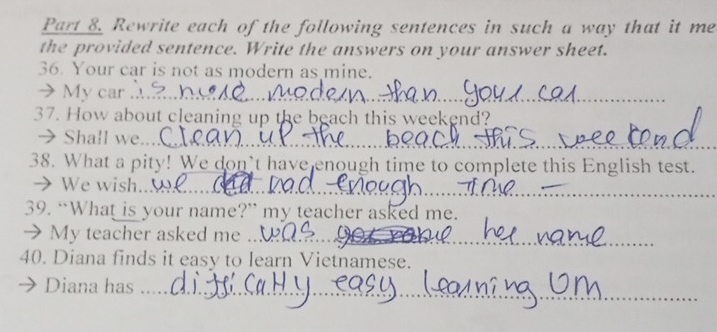 Part 8. Rewrite each of the following sentences in such a way that it me
the provided sentence. Write the answers on your answer sheet.
36. Your car is not as modern as mine.
→ My car is more modern than your car
37. How about cleaning up the beach this weekend?
→ Shall we clean up the beach this weekend
38. What a pity! We don't have enough time to complete this English test.
→ We wish we had enough time –
39. “What is your name?” my teacher asked me.
→ My teacher asked me was her name
40. Diana finds it easy to learn Vietnamese.
→ Diana has easy learning